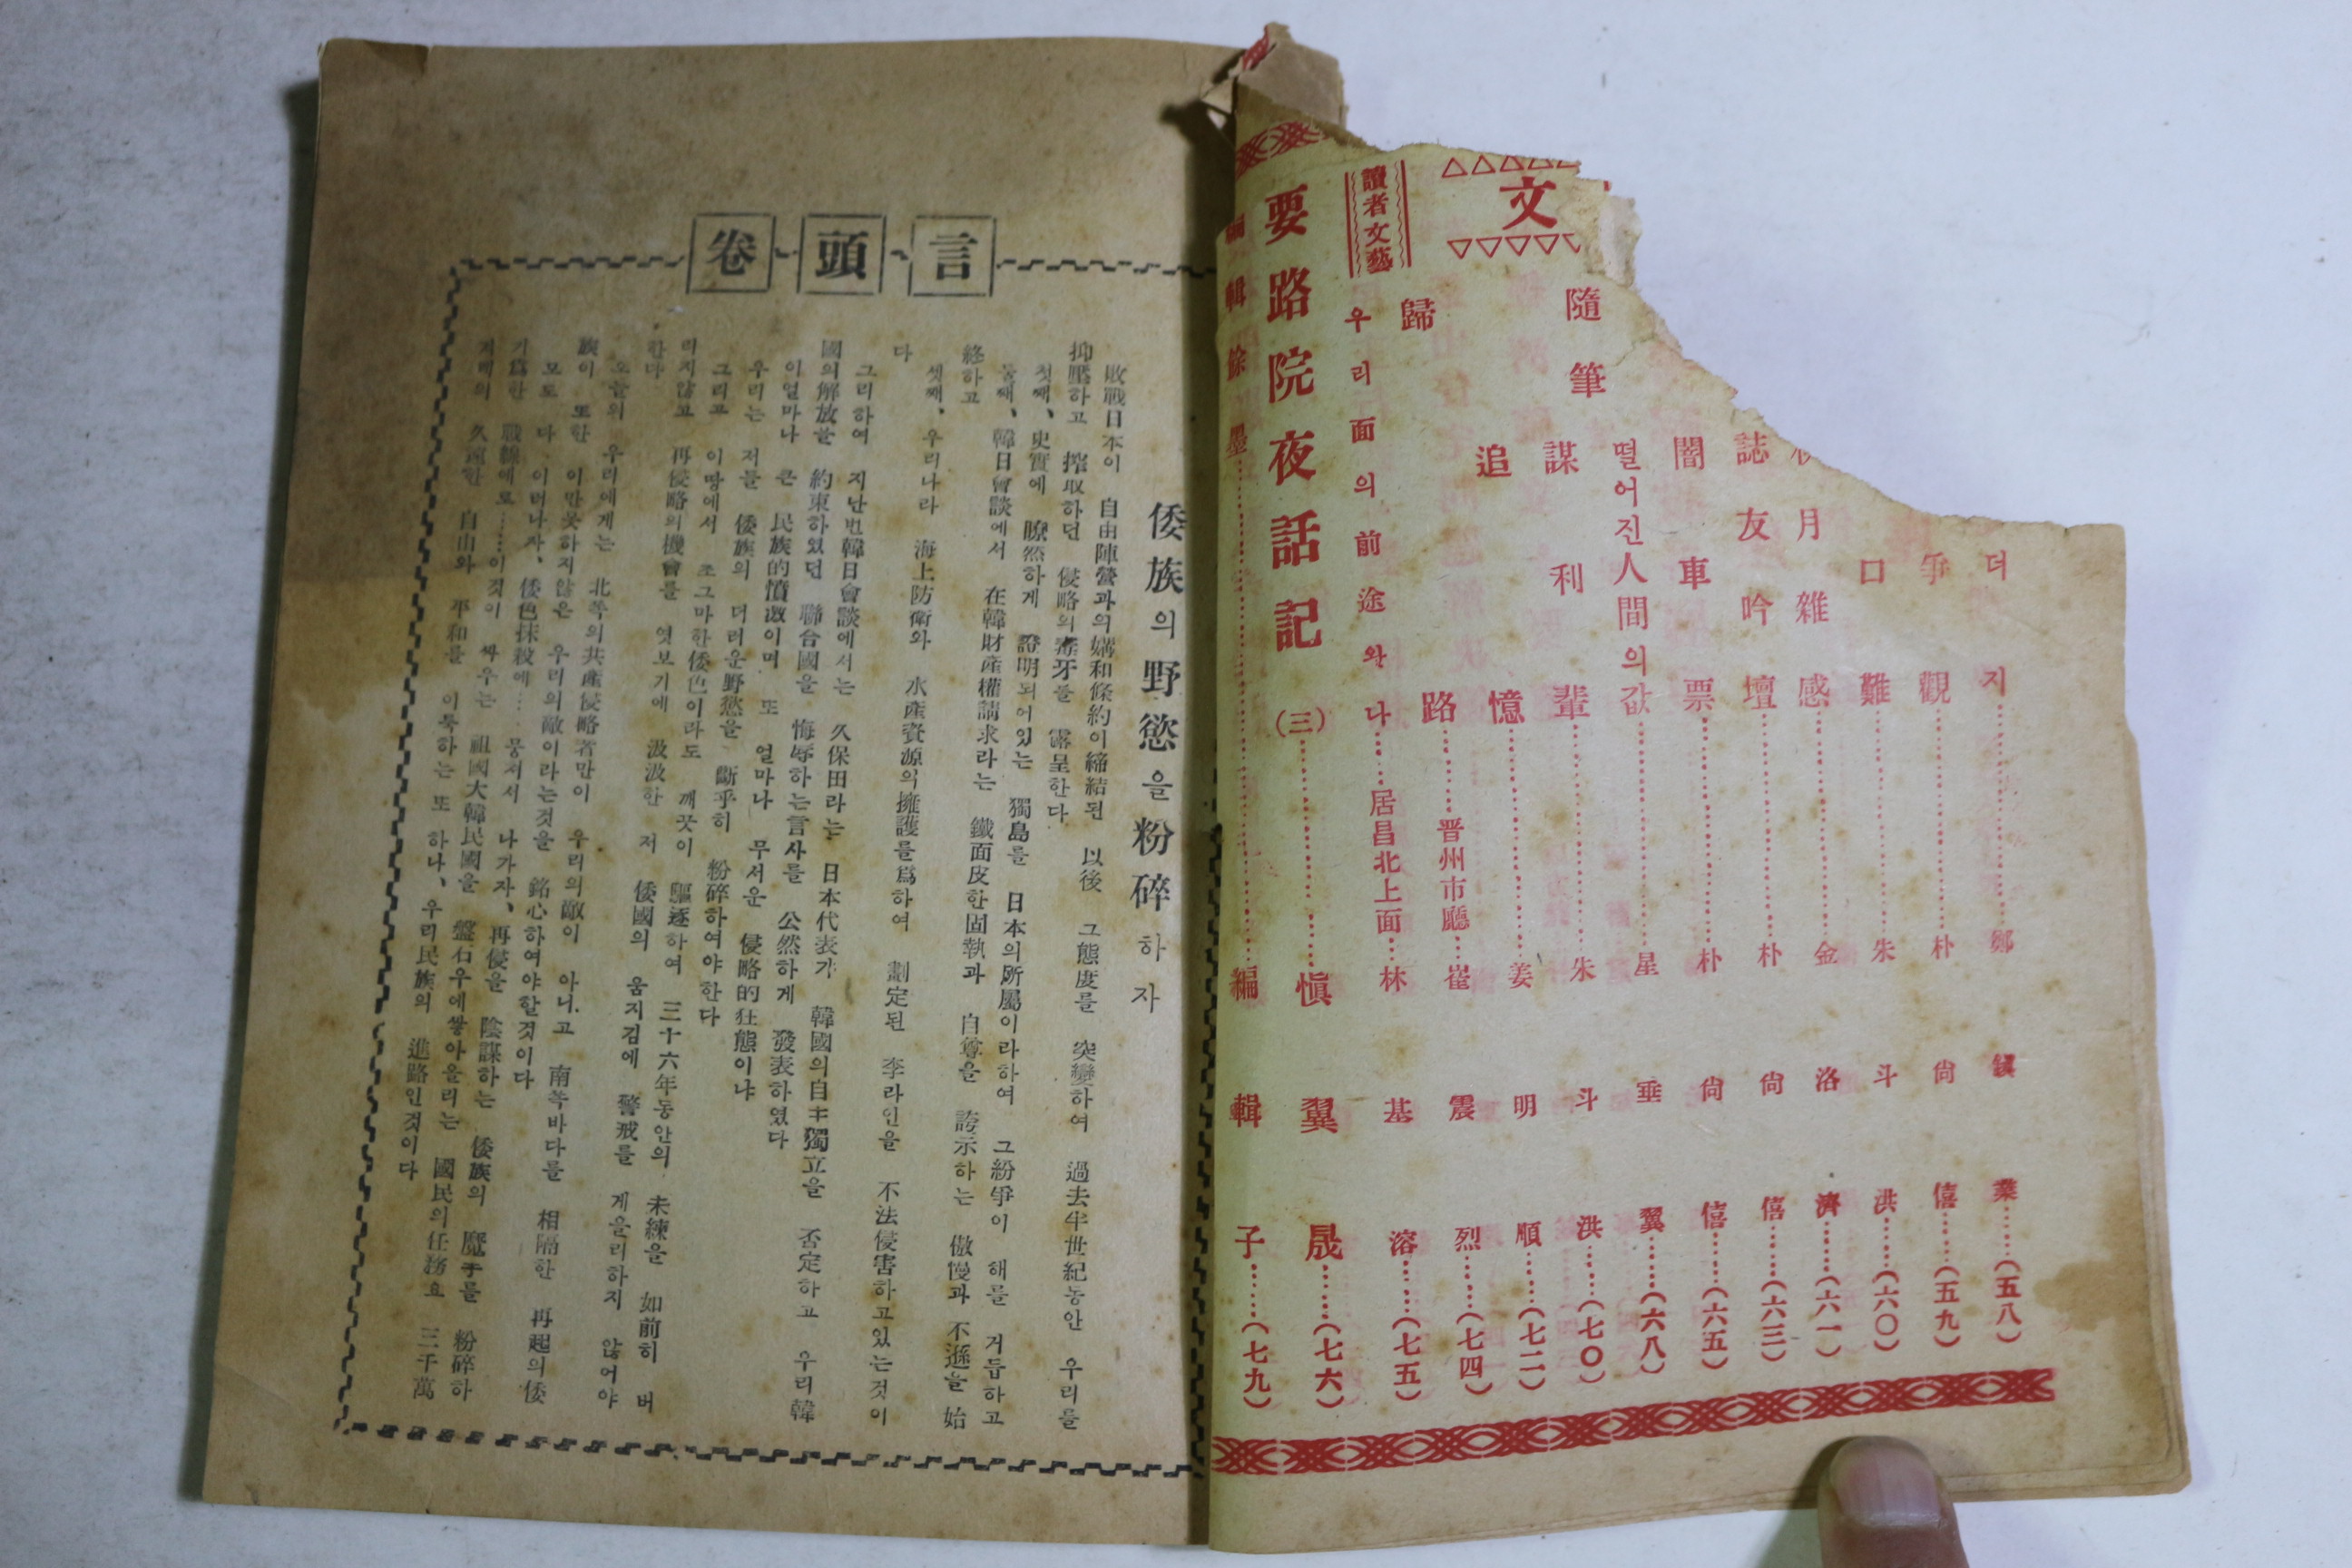 文
隨筆
더지……鄭 業……(五八)
爭觀……朴尙僖……(五九)
口難……朱斗洪……(六〇)
月雜感……金洛濟……(六一)
誌友吟壇……朴尙僖……(六三)
闇車票……朴尙僖……(六五)
떨어진人間의값……星垂翼……(六八)
謀利輩……朱斗洪……(七〇)
追憶……姜明順……(七二)
讀者文藝
歸路……晋州市廳…崔震烈……(七四)
우리面의前途와나……居昌北上面…林基溶……(七五)
要路院夜話記(三)……愼翼晟……(七六)
編輯餘墨……編輯子……(七九)
卷頭言
倭族의野慾을粉碎하자
敗戰日本이 自由陣營과의媾和條約이締結된 以後 그態度를 突變하여 過去半世紀동안 우리를
抑壓하고 搾取하던 侵略의毒牙를 露呈한다
첫째、史實에 瞭然하게 證明되어있는 獨島를 日本의所屬이라하여 그紛爭이 해를 거듭하고
둘째、韓日會談에서 在韓財産權請求라는 鐵面皮한固執과 自尊을 誇示하는 傲慢과 不遜을 始
終하고
셋째、우리나라 海上防衛와 水産資源의擁護를爲하여 劃定된 李라인을 不法侵害하고있는것이
다
그리하여 지난번韓日會談에서는 久保田라는 日本代表가 韓國의自主獨立을 否定하고 우리韓
國의解放을 約束하였던 聯合國을 悔辱하는言사를 公然하게 發表하였다
이얼마나 큰 民族的憤激이며 또 얼마나 무서운 侵略的狂態이냐
우리는 저들 倭族의 더러운野慾을 斷乎히 粉碎하여야한다
그리고 이땅에서 조그마한倭色이라도 깨끗이 驅逐하여 三十六年동안의 未練을 如前히 버
리지않고 再侵略의機會를 엿보기에 汲汲한 저 倭國의 움지김에 警戒를 게을리하지 않어야
한다
오늘의 우리에게는 北쪽의共産侵略者만이 우리의敵이 아니고 南쪽바다를 相隔한 再起의倭
族이 또한 이만못하지않은 우리의敵이라는것을 銘心하여야할것이다
모도 다 이러나자、倭色抹殺에… 뭉쳐서 나가자、再侵을 陰謀하는 倭族의 魔手를 粉碎하
기爲한 戰線에로……이것이 싸우는 祖國大韓民國을 盤石우에쌓아올리는 國民의任務요 三千萬
겨레의 久遠한 自由와 平和를 이룩하는 또 하나、우리民族의 進路인것이다